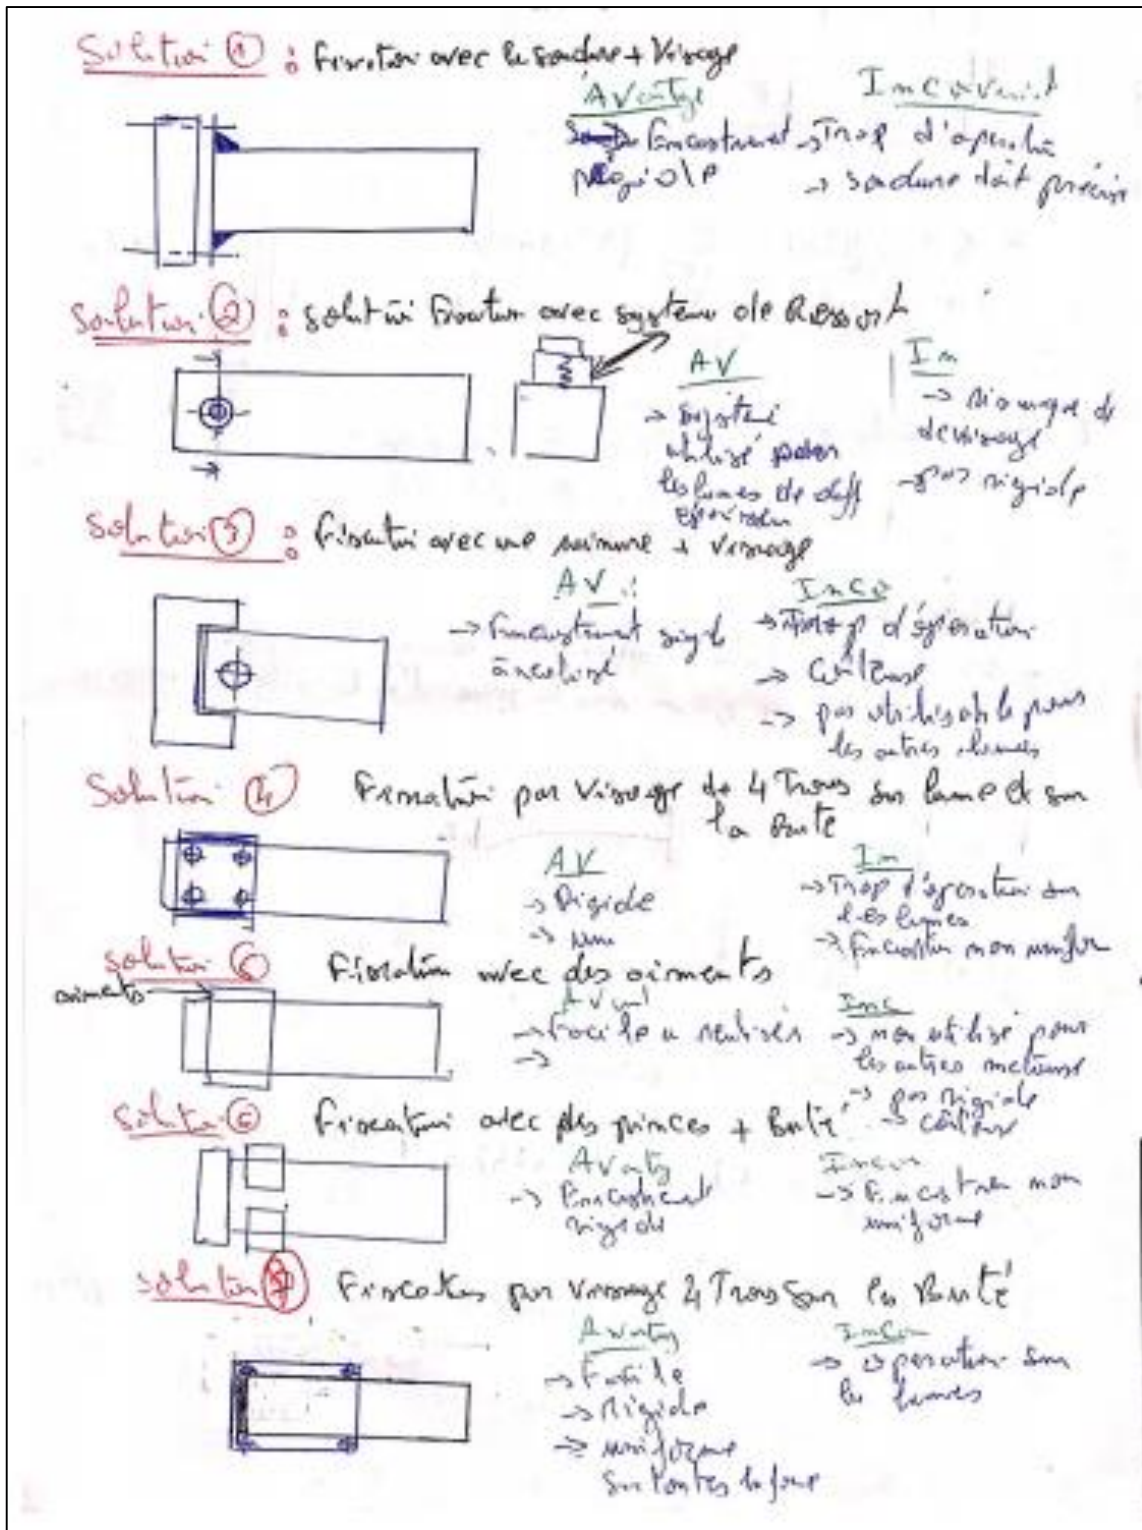 Solution ① : Fixation avec la soudure + Vissage
Avantage
Encastrement
rigide
Inconvenient
→ Trop d'operation
→ soudure doit précise
Solution ② : solution Fixation avec système de Ressort
AV
→ système
utilisé pour
les lames de diff
epaisseur
In
→ risque de
devissage
→ pas rigide
Solution ③ : Fixation avec une rainure + vissage
AV
→ Encastrement
Inco
→ Trop d'operation
→ Coûteuse
→ pas utilisable pour
les autres lames
Solution ④ Fixation par Vissage de 4 Trous sur lame et sur
la Buté
AV
→ Rigide
In
→ Trop d'operation sur
les lames
→ Encastrer non
Solution Fixation avec des aiments
aiments
→ Facile a
→
Inc
→ non utilisé pour
les autres
→ pas rigide
→ coûteuse
Solution ⑥ Fixation avec des pinces + Buté
Avantag
→ Encastrement
rigide
→ Encastrer non
uniforme
Solution ⑦ Fixation par vissage 4 Trous sur la Buté
Avantag
→ Facile
→ Rigide
→ uniforme
sur toutes la face
→ operation sur
les lames